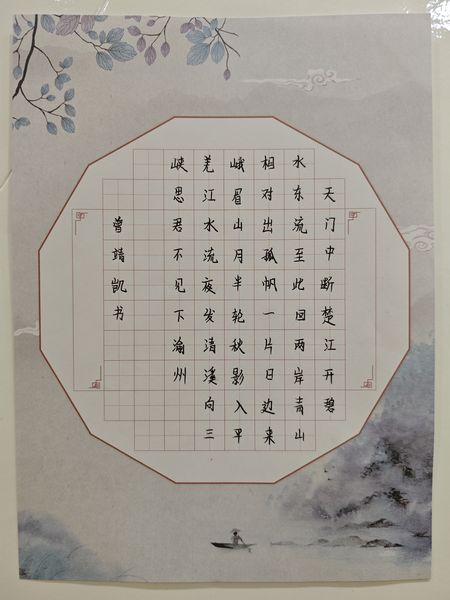 天门中断楚江开碧
水东流至此回两岸青山
相对出孤帆一片日边来
峨眉山月半轮秋影入平
羌江水流夜发清溪向三
峡思君不见下渝州
曾靖凯书